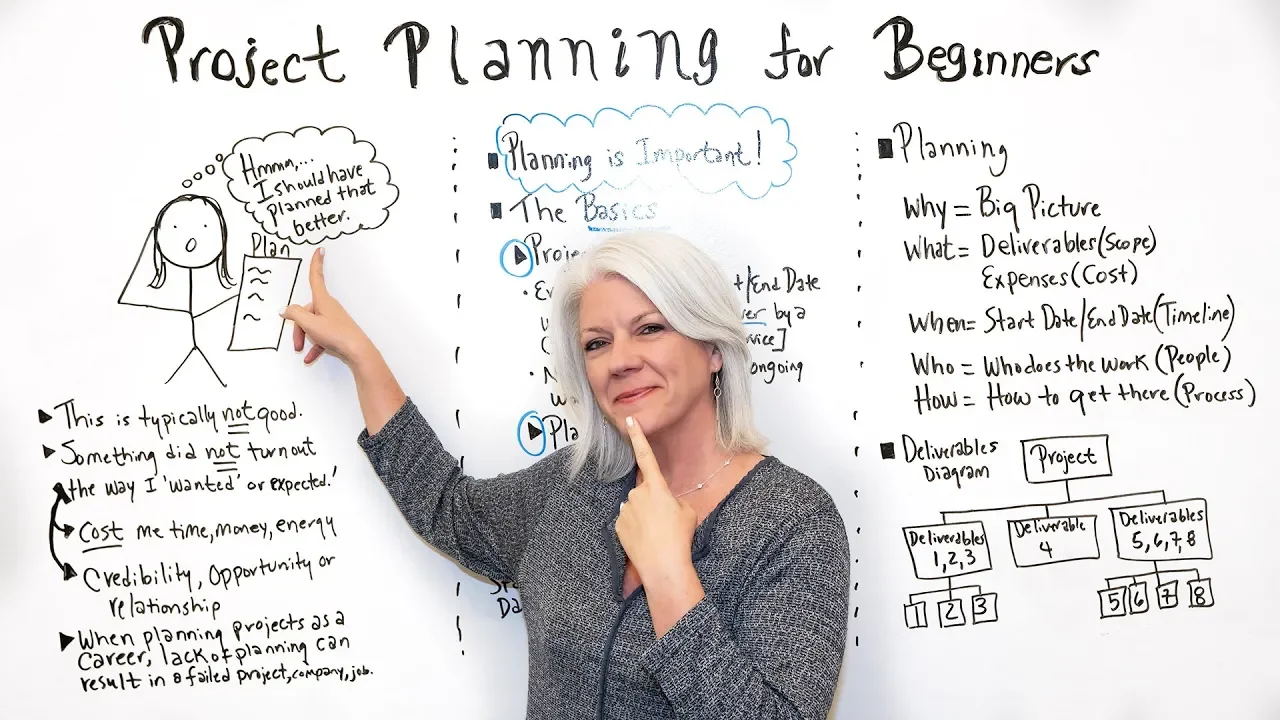 Project Planning for Beginners
Hmmm,...
I should have
planned that
better.
Plan
This is typically not good.
Something did not turnout
the way I 'wanted' or expected.'
Cost me time, money, energy
Credibility, Opportunity or
relationship
When planning projects as a
career, lack of planning can
result in a failed project, company, job.
Planning is Important!
The Basics
/End Date
by a
ongoing
Planning
Why = Big Picture
What = Deliverables (Scope)
Expenses (Cost)
When = Start Date/End Date (Timeline)
Who = Who does the work (People)
How = How to get there (Process)
Deliverables
Diagram
Project
Deliverables
1, 2, 3
Deliverable
4
Deliverables
5, 6, 7, 8
1 2 3
5 6 7 8